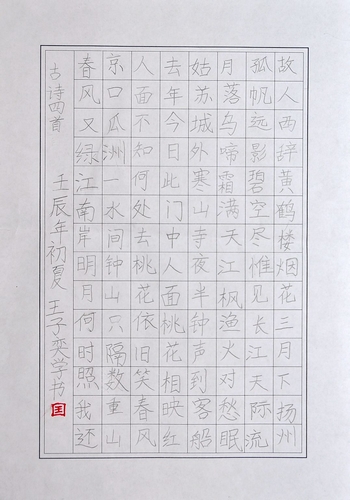 故人西辞黄鹤楼烟花三月下扬州
孤帆远影碧空尽惟见长江天际流
月落乌啼霜满天江枫渔火对愁眠
姑苏城外寒山寺夜半钟声到客船
去年今日此门中人面桃花相映红
人面不知何处去桃花依旧笑春风
京口瓜洲一水间钟山只隔数重山
春风又绿江南岸明月何时照我还
古诗四首 壬辰年初夏 王子奕学书